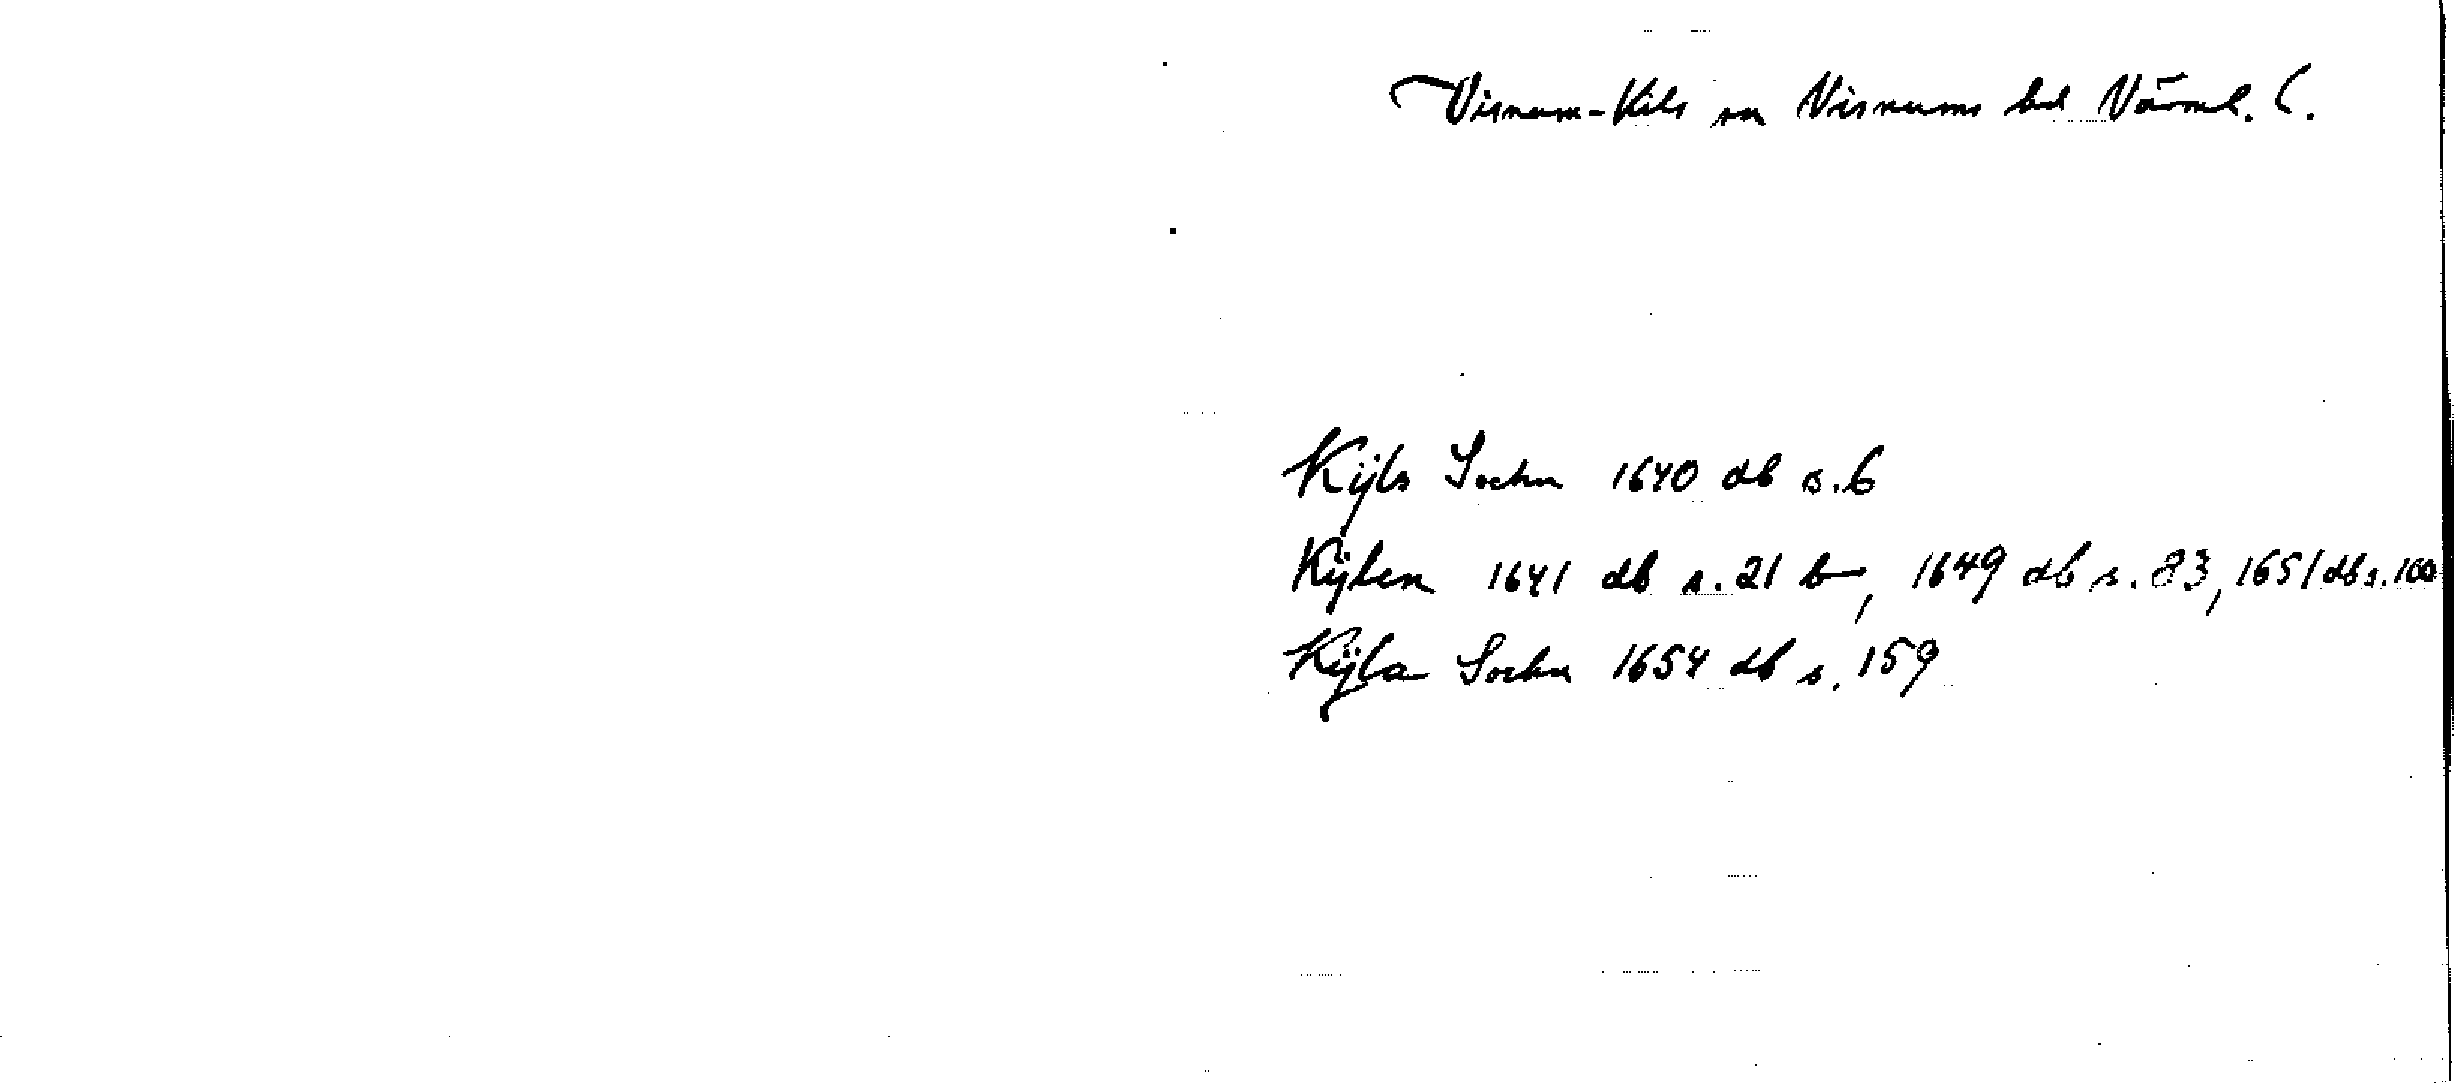 Visnum-Kils sn Visnums hd Värml. l.
Kÿls Sochn 1640 db s. 6
Kÿlen 1641 db s. 21 b, 1649 db s. 83, 1651 db s. 100
Kÿla Sochn 1654 db s. 159